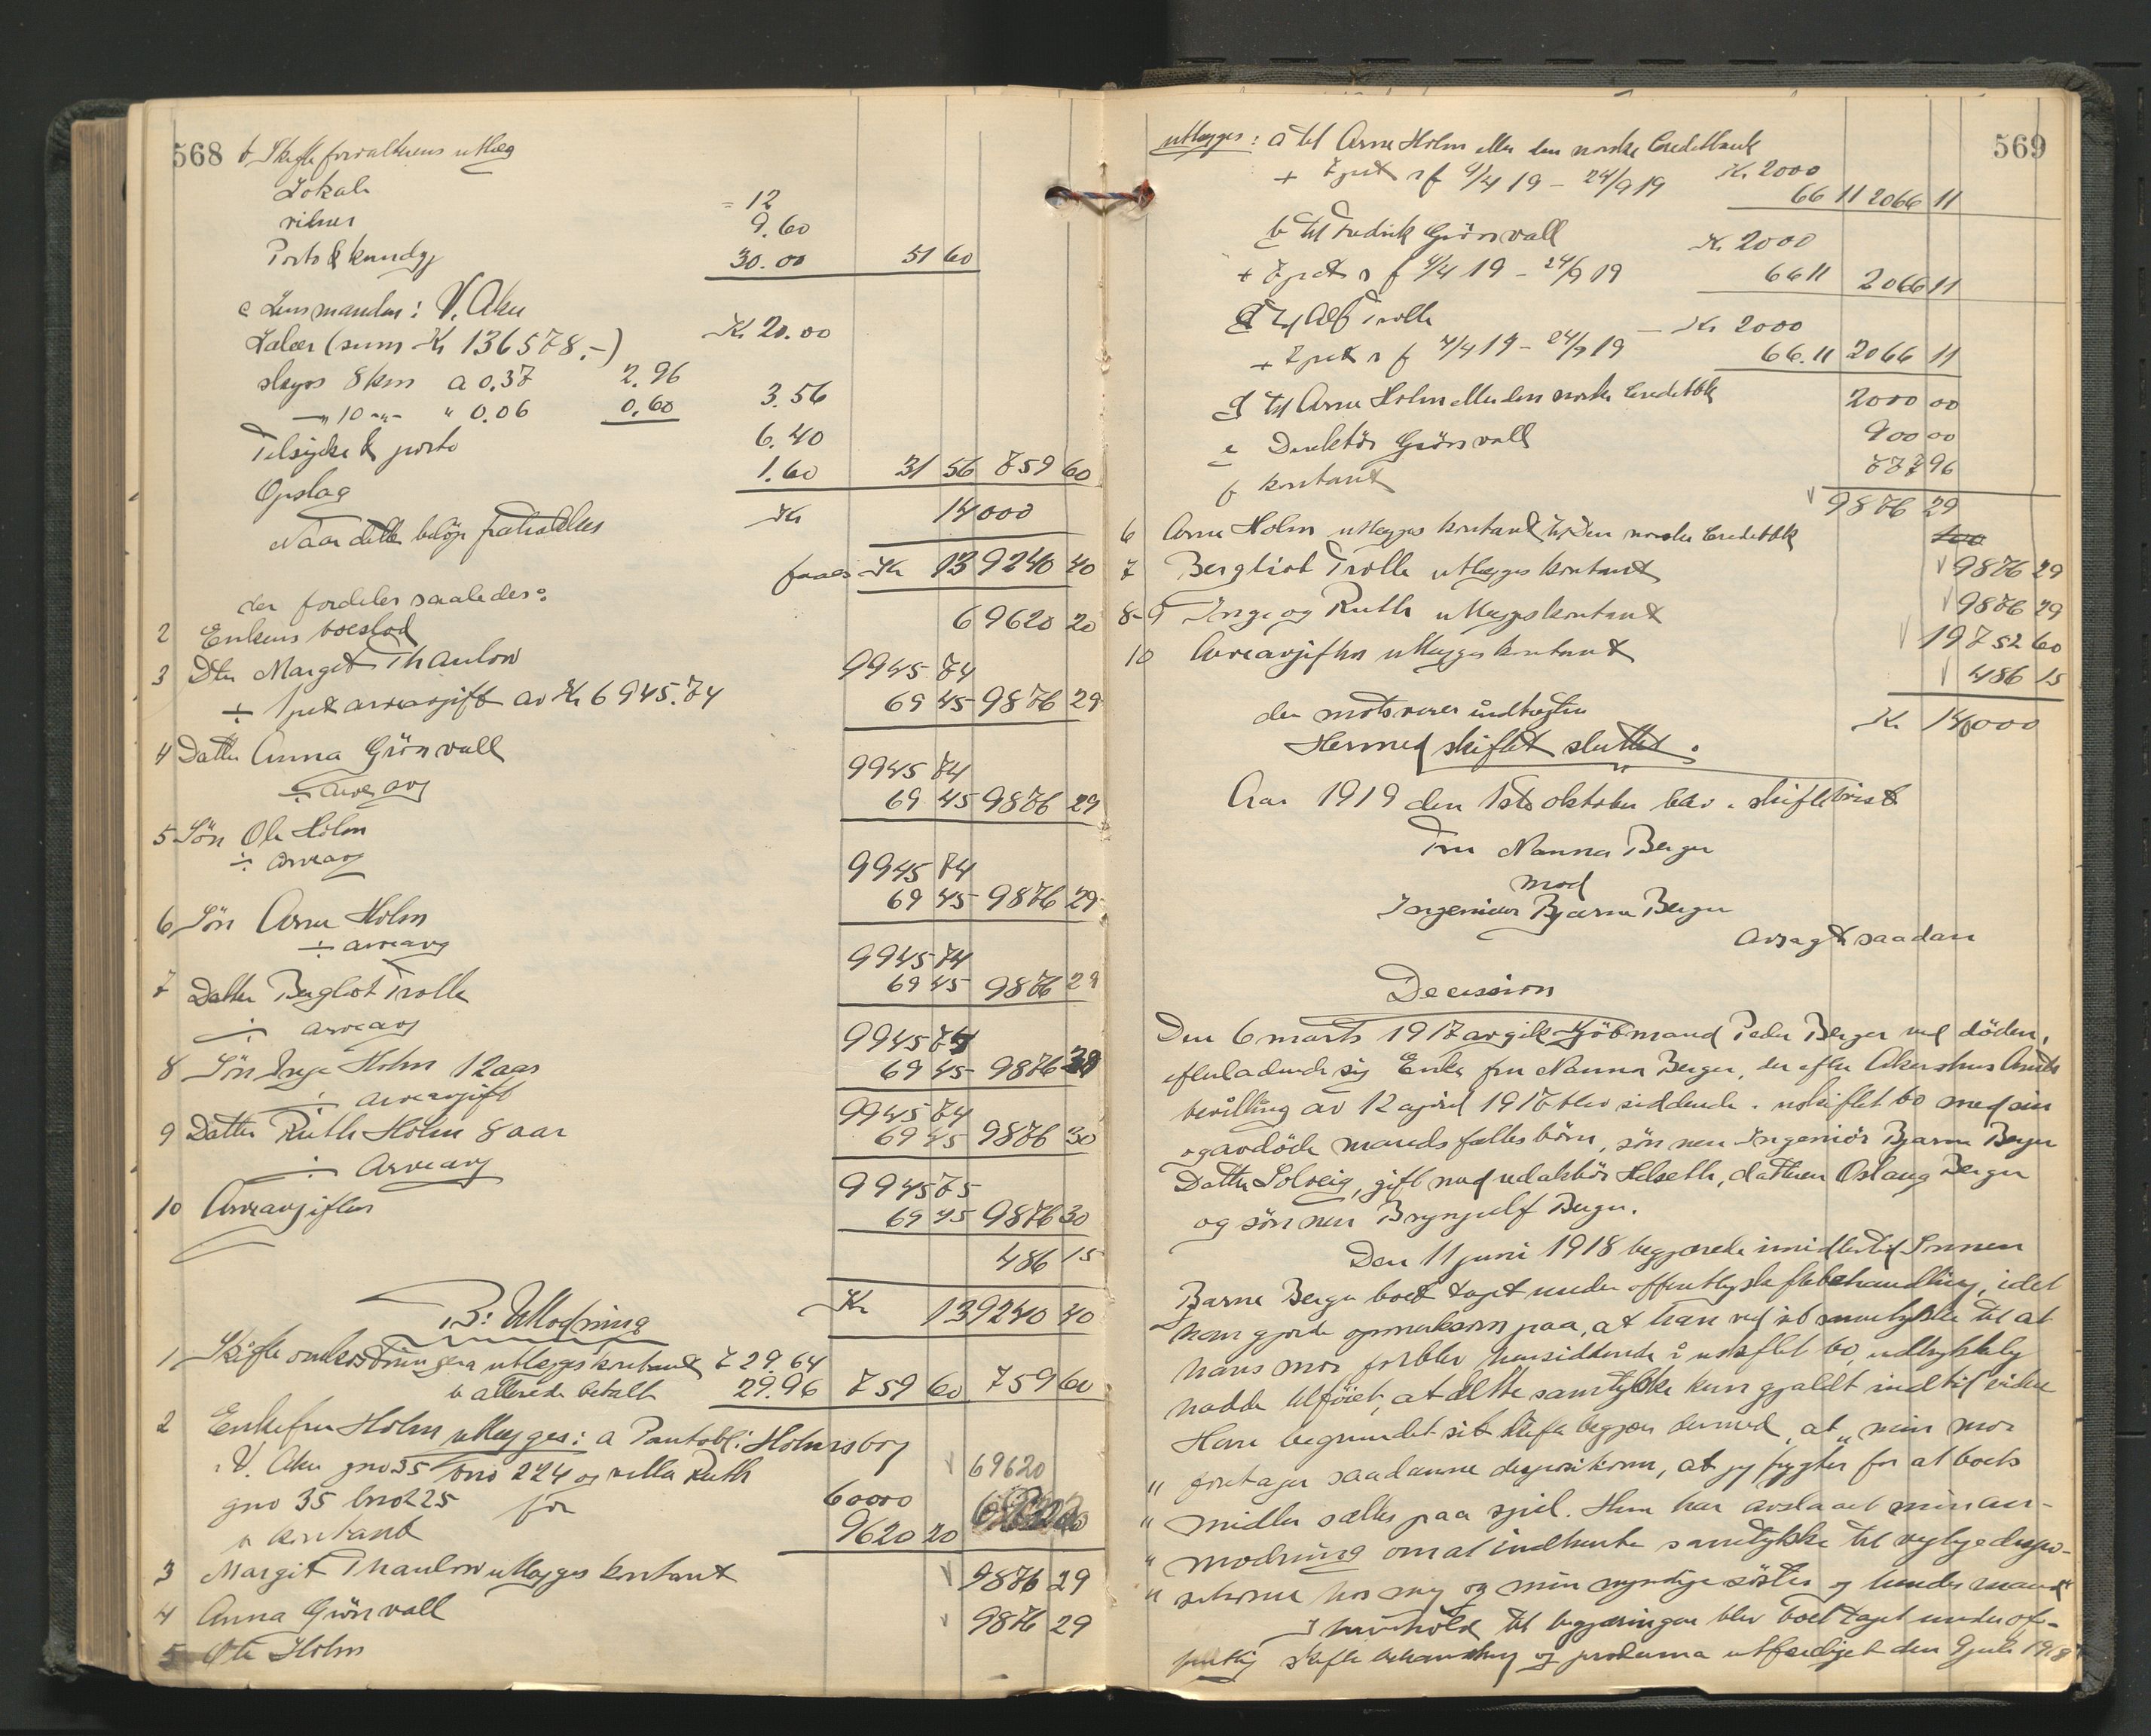 568 b, Skifteforvalterens utlæg
Lokale = 12
vidner 9.60
Porto & kundgj 30.00 51 60
c Lensmanden i V. Aker
Salær (sum Kr 136578,-) Kr 20.00
skyss 8 km a 0.37 2.96
-"- 10 -"- " 0.06 0.60 3.56
Tilsigelse & porto 6.40
Opslag 1.60 31 56 759 60
Kr 14000
Naar dette beløp fratrækkes
faaes Kr 139240 40
der fordeles saaledes:
2 Enkens boeslod 69620 20
3 Dtr Margit Thaulow 9945 74
÷ 1 pct arveavgift av Kr 6945.74 69 45 9876 29
4 Datter Anna Grönvall 9945 74
÷ arveavg 69 45 9876 29
5 Sön Ole Holm 9945 74
÷ arveavg 69 45 9876 29
6 Sön Arne Holm 9945 74
÷ arveavg 69 45 9876 29
7 Datter Bergliot Trolle 9945 74
÷ arveavg 69 45 9876 30
8 Sön Inge Holm 12 aar 9945 74
÷ arveavgift 69 45 9876 30
9 Datter Ruth Holm 8 aar 9945 75
÷ Arveavg 69 45 9876 30
10 Arveavgiften 486 15
Kr 139240 40
B: Utlodning
1, Skifteomkostningene utlegges kontant 729.64
b allerede betalt 29.96 759 60 759 60
2 Enkefru Holm utlegges: a Pantobl: Holmsborg
i V. Aker gno 35 bno 224 og villa Ruth 69620
gno 35 bno 225 for 60000
b kontant 9620 20
3 Margit Thaulow utlegges kontant 9876 29
4 Anna Grönvall 9876 29
5 Ole Holm
569
utlegges: a til Arne Holm eller den norske Creditbank Kr 2000
+ 7 pct r f 4/4 19 - 24/9 19 66 11 2066 11
b til Fredrik Grönvall Kr 2000
+ 7 pct r f 4/4 19 - 24/9 19 66 11 2066 11
c til Alf Trolle Kr 2000
+ 7 pct r f 4/4 19 - 24/9 19 66.11 2066 11
d til Arne Holm eller den norske Creditbk 2000 00
e Direktör Grönvall 900 00
f kontant 777 96
9876 29
6 Arne Holm utlegges kontant til Den norske Creditbk 9876 29
7 Bergliot Trolle utlegges kontant 9876 29
8-9 Inge og Ruth utlegges kontant 19752 60
10 Arveavgiften utlegges kontant 486 15
Kr 140000
der motsvarer indtægten
Hermed skiftet sluttet.
Aar 1919 den 1ste oktober blev i skifteretten
Fru Nanna Berger
mod
Ingeniør Bjarne Berger
avsagt saadan
Decission
Den 6 marts 1917 avgik Kjöbmand Peder Berger ved döden,
efterladende sig Enke fru Nanna Berger, der efter Akershus Amts
bevilling av 12 april 1917 blev siddende i uskiftet bo med sin
og avdöde mands fælles börn, sön nen Ingeniör Bjarne Berger
Datter Solveig, gift med redaktör Helseth, datteren Aslaug Berger
og sön nen Brynjulf Berger.
Den 11 juni 1918 begjærede imidlertid Sönnen
Bjarne Berger boet taget under offentlig skiftebehandling, idet
han gjorde opmerksom paa, at han ved sit samtykke til at
hans mor forblev hensiddende i uskiftet bo, udtrykkelig
hadde tilföiet, at dette samtykke kun gjaldt indtil videre
Han begrundet sit skifte begjær dermed, at „min mor
" foretager saadanne dispositioner, at jeg frygter for at boets
" midler sættes paa spil. Hun har avslaaet min an-
" modning om at indhente samtykke til vigtige dispo-
" sitioner hos mig og min myndige söster og hendes mand"
I henhold til begjæringen blev boet taget under of-
fentlig skifte behandling og proclama utfærdiget den 9 juli 1918